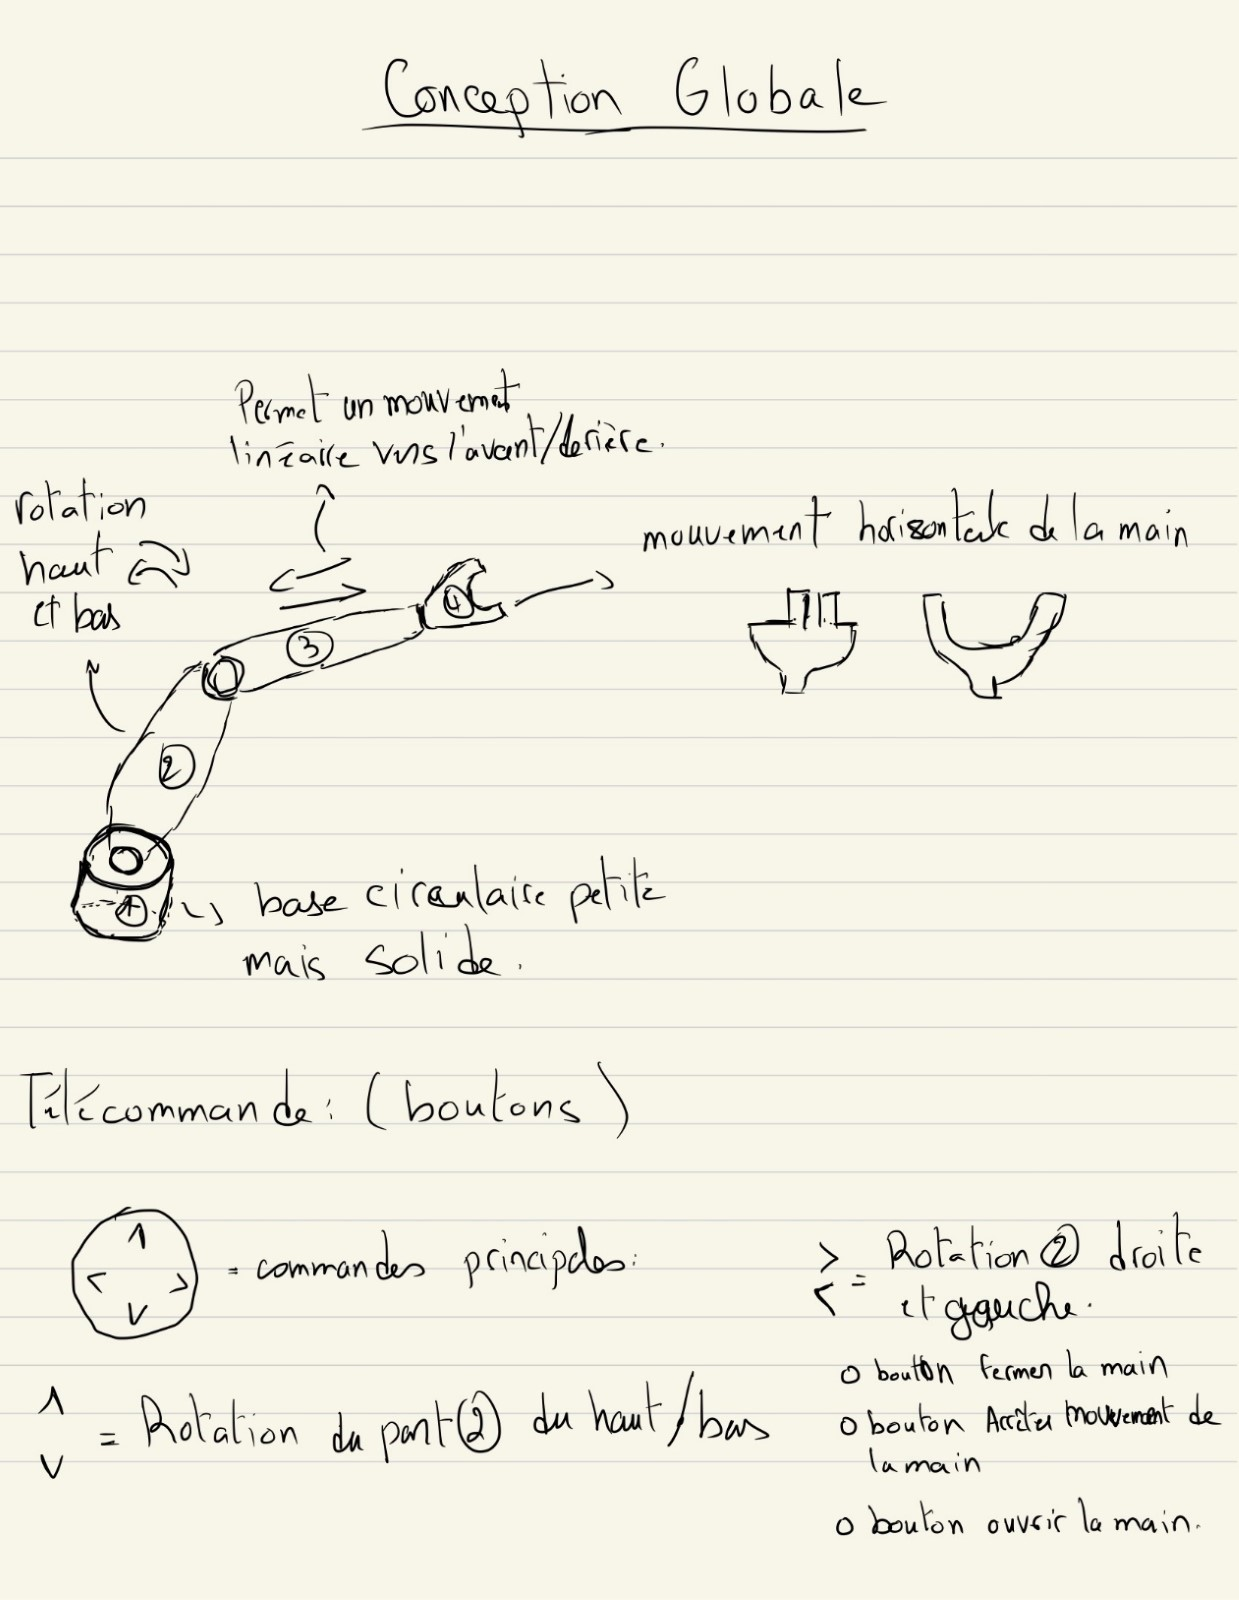 Conception Globale
Permet un mouvement
linéaire vers l'avant/derière.
rotation
haut
et bas
mouvement horizontale de la main
4
3
2
1
base circulaire petite
mais solide.
Télécommande: (boutons)
= commandes principales:
> < = Rotation 2 droite
et gauche.
o bouton fermer la main
o bouton Arrêter mouvement de
la main
o bouton ouvrir la main.
∧ ∨ = Rotation du part 2 du haut/bas